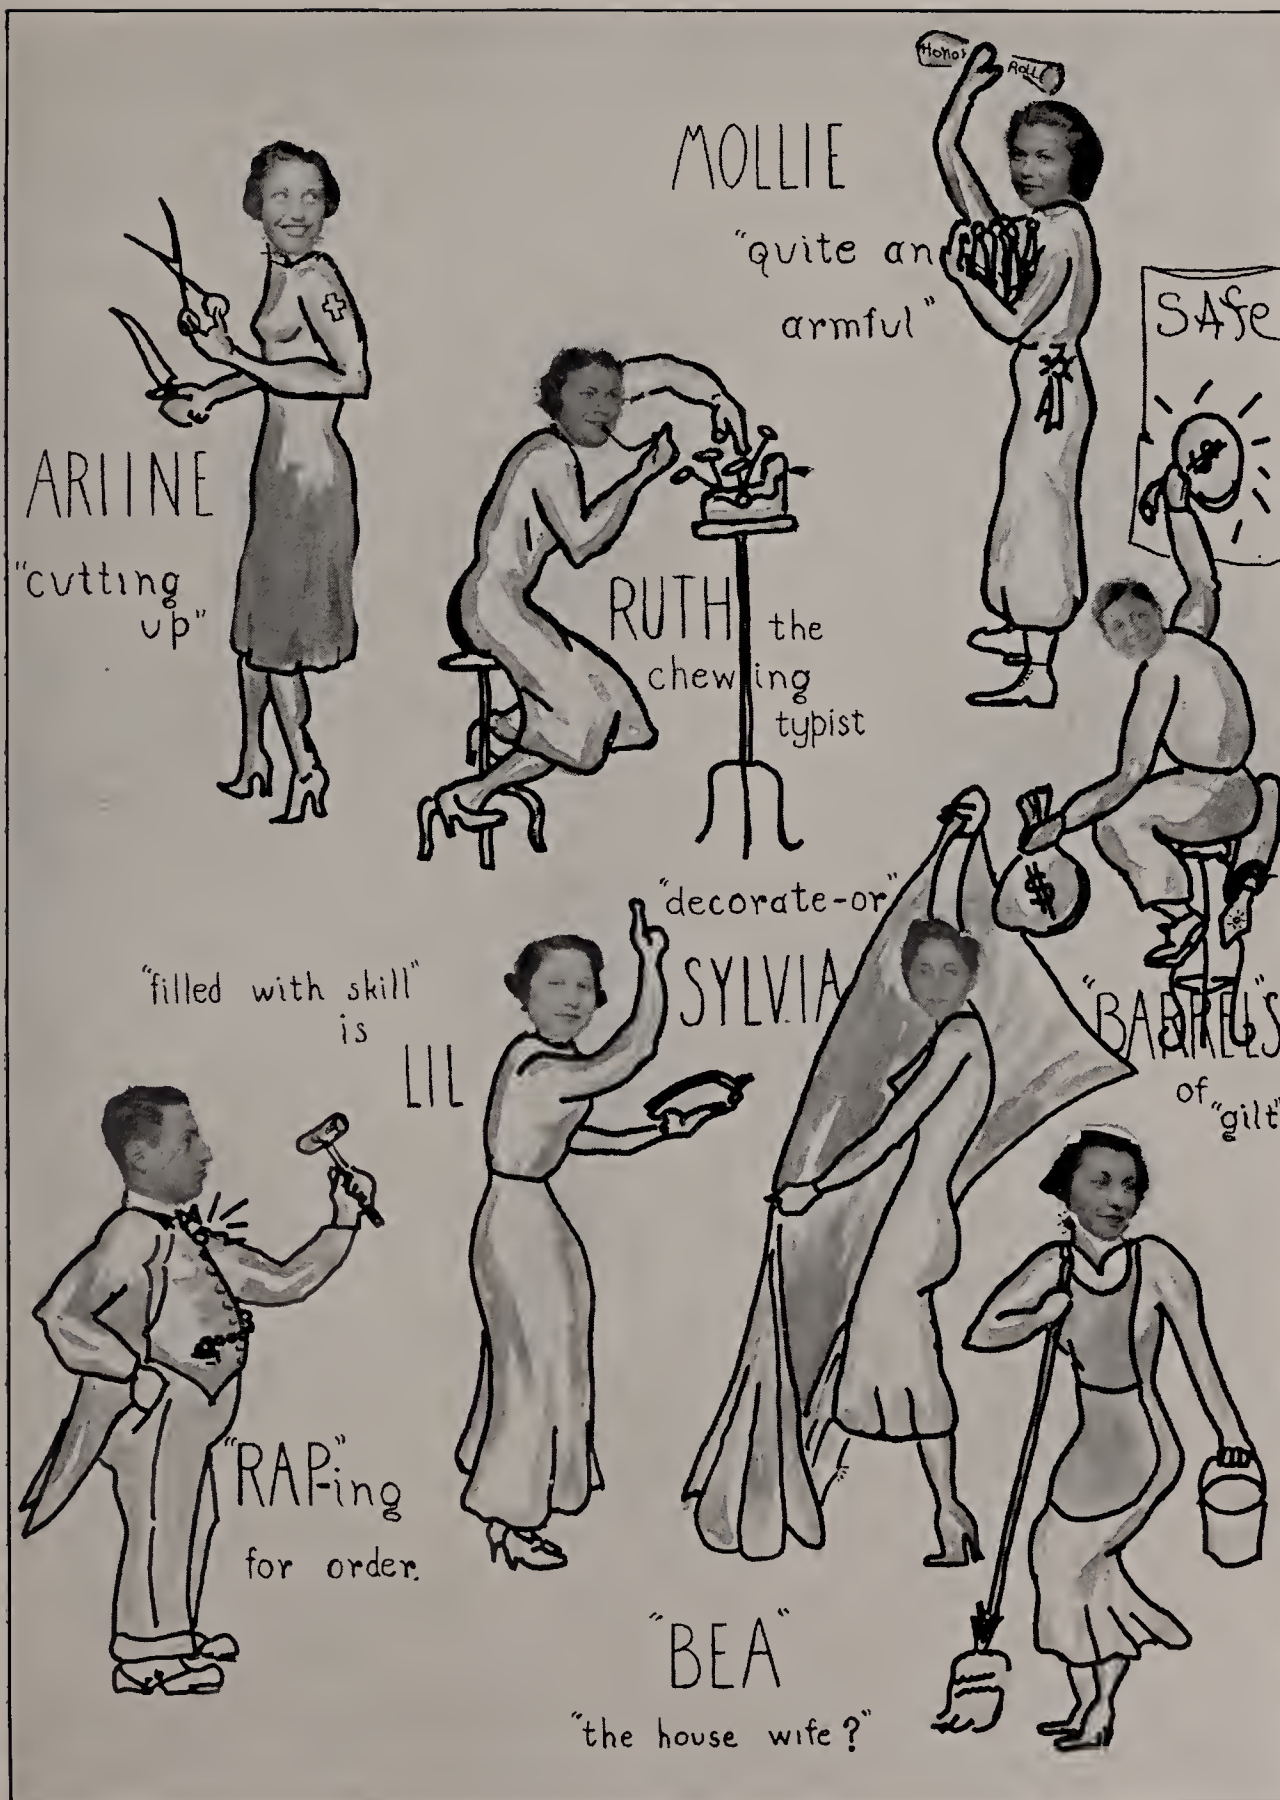 Honor Roll
MOLLIE
"quite an
armful"
SAfe
$
ARIINE
"cutting
up"
RUTH the
chewing
typist
"decorate-or"
SYLVIA
$
"BARREL'S
of "gilt"
"filled with skill"
is
LIL
"RAP"-ing
for order.
"BEA"
"the house wife?"